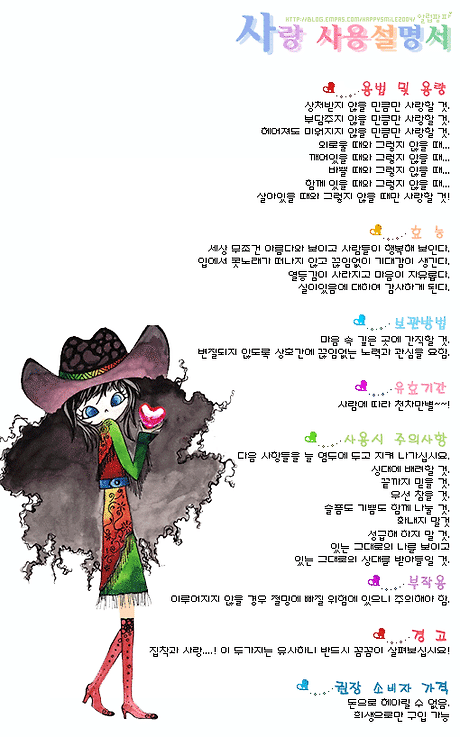 HTTP://BLOG.EMPAS.COM/HAPPYSMILE2004/
사랑 사용설명서
용법 및 용량
상처받지 않을 만큼만 사랑할 것.
부담주지 않을 만큼만 사랑할 것.
헤어져도 미워지지 않을 만큼만 사랑할 것.
외로울 때와 그렇지 않을 때...
깨어있을 때와 그렇지 않을 때...
바쁠 때와 그렇지 않을 때...
함께 있을 때와 그렇지 않을 때...
살아있을 때와 그렇지 않을 때만 사랑할 것!
효 능
세상 무조건 아름다와 보이고 사람들이 행복해 보인다.
입에서 콧노래가 떠나지 않고 끊임없이 기대감이 생긴다.
열등감이 사라지고 마음이 자유롭다.
살아있음에 대하여 감사하게 된다.
보관방법
마음 속 깊은 곳에 간직할 것.
변질되지 않도록 상호간에 끊임없는 노력과 관심을 요함.
유효기간
사람에 따라 천차만별~~!
사용시 주의사항
다음 사항들을 늘 염두에 두고 지켜 나가십시요.
상대에 배려할 것.
끝까지 믿을 것.
우선 참을 것.
슬픔도 기쁨도 함께 나눌 것.
화내지 말것
성급해 하지 말 것.
있는 그대로의 나를 보이고
있는 그대로의 상대를 받아들일 것.
부작용
이루어지지 않을 경우 절망에 빠질 위험에 있으니 주의해야 함.
경 고
집착과 사랑....! 이 두가지는 유사하니 반드시 꼼꼼이 살펴보십시요!
권장 소비자 가격
돈으로 헤아릴 수 없음.
희생으로만 구입 가능